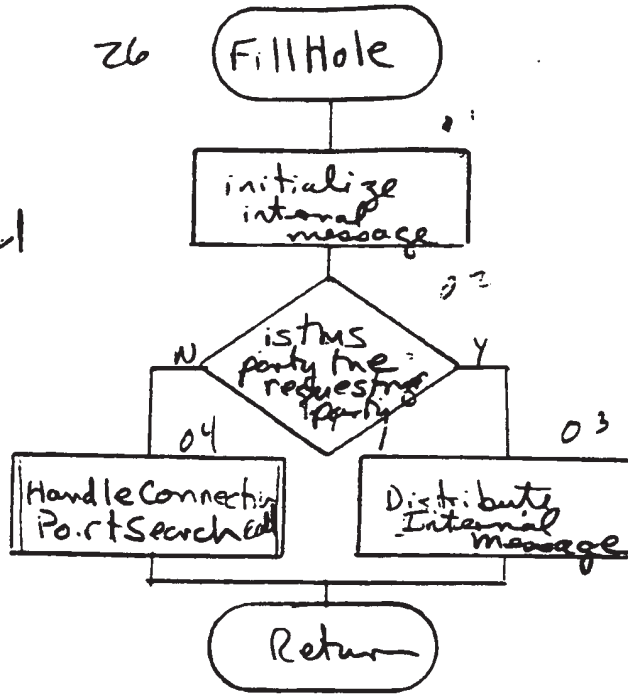 26
FillHole
initialize
internal
message
02
is this
party the
requesting
party
N
Y
04
03
HandleConnection
PortSearch
Distribute
Internal
Message
Return